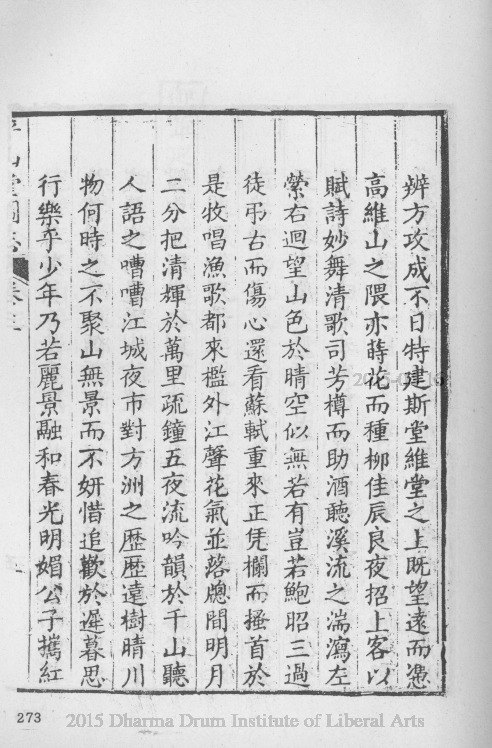 辨方攻成不日特建斯堂維堂之上旣望遠而憑
高維山之隈亦蒔花而種柳佳辰良夜招上客以
賦詩妙舞清歌司芳樽而助酒聽溪流之湍瀉左
縈右迴望山色於晴空似無若有豈若鮑昭三過
徒弔古而傷心還看蘇軾重來正凭欄而搔首於
是牧唱漁歌都來檻外江聲花氣並落牕間明月
二分把清輝於萬里疏鐘五夜流吟韻於千山聽
人語之嘈嘈江城夜市對方洲之歷歷遠樹晴川
物何時之不聚山無景而不妍惜追歡於遲暮思
行樂乎少年乃若麗景融和春光明媚公子攜紅
山堂圖志 卷三
273 2015 Dharma Drum Institute of Liberal Arts